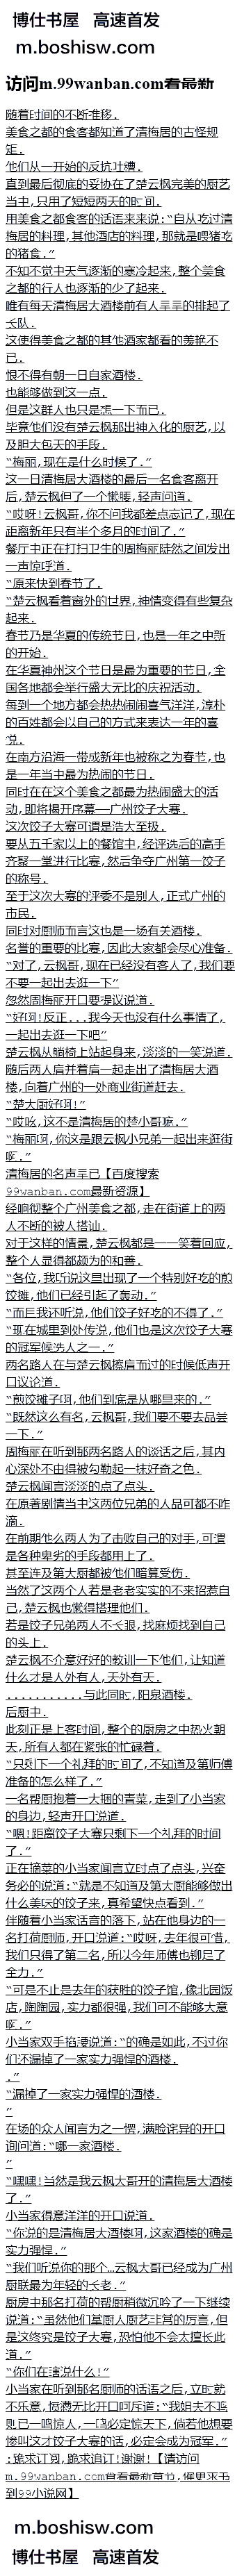 博仕书屋 高速首发
m.boshisw.com
访问m.99wanban.com看最新
随着时间的不断推移.
美食之都的食客都知道了清梅居的古怪规
矩.
他们从一开始的反抗吐槽.
直到最后彻底的妥协在了楚云枫完美的厨艺
当中,只用了短短两天的时间.
用美食之都食客的话语来来说:“自从吃过清
梅居的料理,其他酒店的料理,那就是喂猪吃
的猪食.”
不知不觉中天气逐渐的寒冷起来,整个美食
之都的行人也逐渐的少了起来.
唯有每天清梅居大酒楼前有人早早的排起了
长队.
这使得美食之都的其他酒家都看的羡艳不
已.
恨不得有朝一日自家酒楼.
也能够做到这一点.
但是这群人也只是想一下而已.
毕竟他们没有楚云枫那出神入化的厨艺,以
及胆大包天的手段.
“梅丽,现在是什么时候了.”
这一日清梅居大酒楼的最后一名食客离开
后,楚云枫伸了一个懒腰,轻声问道.
“哎呀!云枫哥,你不问我都差点忘记了,现在
距离新年只有半个多月的时间了.”
餐厅中正在打扫卫生的周梅丽陡然之间发出
一声惊呼道.
“原来快到春节了.
“楚云枫看着窗外的世界,神情变得有些复杂
起来.
春节乃是华夏的传统节日,也是一年之中所
的开始.
在华夏神州这个节日是最为重要的节日,全
国各地都会举行盛大无比的庆祝活动.
每到一个地方都会热热闹闹喜气洋洋,淳朴
的百姓都会以自己的方式来表达一年的喜
悦.
在南方沿海一带成新年也被称之为春节,也
是一年当中最为热闹的节日.
同时在在这个美食之都最为热闹盛大的活
动,即将揭开序幕——广州饺子大赛.
这次饺子大赛可谓是浩大至极.
要从五千家以上的餐馆中,经评选后的高手
齐聚一堂进行比赛,然后争夺广州第一饺子
的称号.
至于这次大赛的评委不是别人,正式广州的
市民.
同时对厨师而言这也是一场有关酒楼.
名誉的重要的比赛,因此大家都会尽心准备.
“对了,云枫哥,现在已经没有客人了,我们要
不要一起出去逛一下”
忽然周梅丽开口要提议说道.
“好啊!反正...我今天也没有什么事情了,
一起出去逛一下吧”
楚云枫从躺椅上站起身来,淡淡的一笑说道.
随后两人肩并着肩一起走出了清梅居大酒
楼,向着广州的一处商业街道赶去.
“楚大厨好啊!”
“哎吆,这不是清梅居的楚小哥嘛.”
“梅丽啊,你这是跟云枫小兄弟一起出来逛街
啊.”
清梅居的名声早已【百度搜索
99wanban.com最新资源】
经响彻整个广州美食之都,走在街道上的两
人不断的被人搭讪.
对于这样的情景,楚云枫都是一一笑着回应,
整个人显得都颇为的和善.
“各位,我听说这里出现了一个特别好吃的煎
饺摊,他们已经引起了轰动.”
“而且我还听说,他们饺子好吃的不得了.”
“现在城里到处传说,他们也是这次饺子大赛
的冠军候选人之一.”
两名路人在与楚云枫擦肩而过的时候低声开
口议论道.
“煎饺摊子啊,他们到底是从哪里来的.”
“既然这么有名,云枫哥,我们要不要去品尝
一下.”
周梅丽在听到那两名路人的谈话之后,其内
心深处不由得被勾勒起一抹好奇之色.
楚云枫闻言淡淡的点了点头.
在原著剧情当中这两位兄弟的人品可都不咋
滴.
在前期他么两人为了击败自己的对手,可谓
是各种卑劣的手段都用上了.
甚至连及第大厨都被他们暗算受伤.
当然了这两个人若是老老实实的不来招惹自
己,楚云枫也懒得搭理他们.
若是饺子兄弟两人不长眼,找麻烦找到自己
的头上.
楚云枫不介意好好的教训一下他们,让知道
什么才是人外有人,天外有天.
...........与此同时,阳泉酒楼.
后厨中.
此刻正是上客时间,整个的厨房之中热火朝
天,所有人都在紧张的忙碌着.
“只剩下一个礼拜的时间了,不知道及第师傅
准备的怎么样了.”
一名帮厨抱着一大捆的青菜,走到了小当家
的身边,轻声开口说道.
“嗯!距离饺子大赛只剩下一个礼拜的时间
了.”
正在摘菜的小当家闻言立时点了点头,兴奋
务必的说道:“就是不知道及第大厨能够做出
什么美味的饺子来,真希望快点看到.”
伴随着小当家话音的落下,站在他身边的一
名打荷厨师,开口说道:“哎呀,去年很可惜,
我们只得了第二名,所以今年师傅也铆足了
全力.”
“可是不止是去年的获胜的饺子馆,像北园饭
店,陶陶园,实力都很强,我们可不能够大意
啊.”
小当家双手掐腰说道:“的确是如此,不过你
们还漏掉了一家实力强悍的酒楼.
.”
“漏掉了一家实力强悍的酒楼.
”
在场的众人闻言为之一愣,满脸诧异的开口
询问道:“哪一家酒楼.
”
“嘿嘿!当然是我云枫大哥开的清梅居大酒楼
了.”
小当家得意洋洋的开口说道.
“你说的是清梅居大酒楼啊,这家酒楼的确是
实力强悍.”
“我们听说你的那个…云枫大哥已经成为广州
厨联最为年轻的长老.”
厨房中那名打荷的帮厨稍微沉吟了一下继续
说道:“虽然他们掌厨人厨艺非常的厉害,但
是这终究是饺子大赛,恐怕他不会太擅长此
道.”
“你们在瞎说什么!”
小当家在听到那名厨师的话语之后,立时就
不乐意,愤懑无比开口呵斥道:“我姐夫不鸣
则已一鸣惊人,一鸣必定惊天下,倘若他想要
惨叫这才饺子大赛的话,必定会成为冠军.”
:跪求订阅,跪求追订!谢谢!【请访问
m.99wanban.com查看最新章节,催更求书
到99小说网】
m.boshisw.com
博仕书屋 高速首发